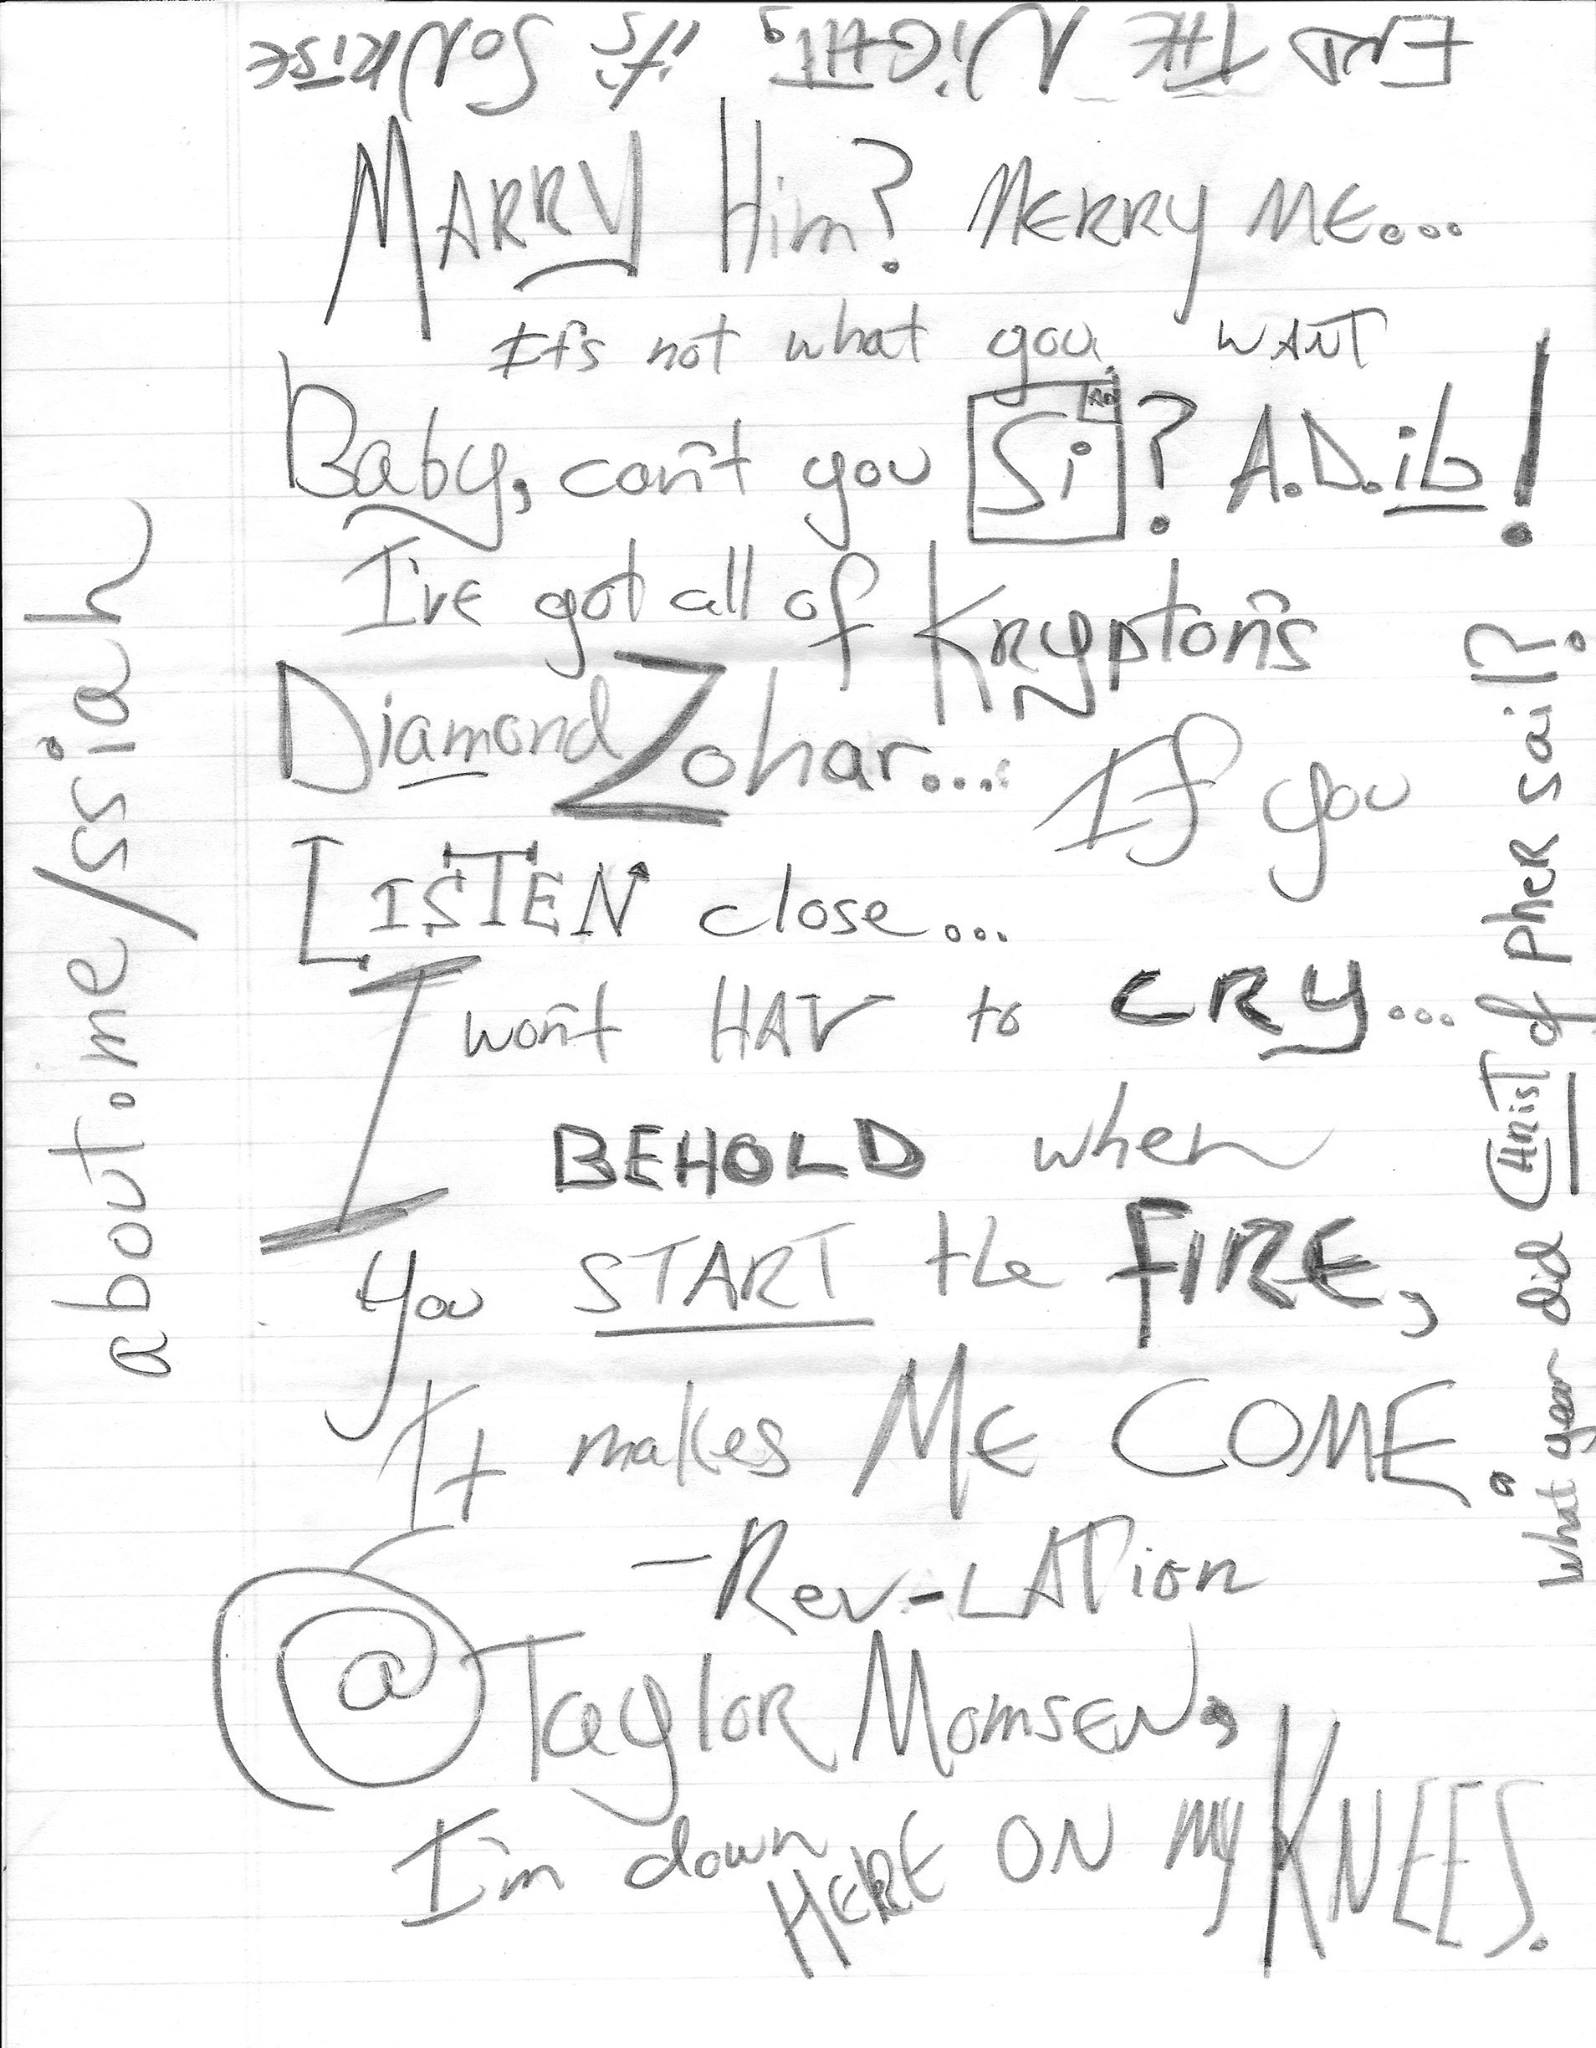 END THE NiGHT, it's SoNRiSE
MARRY Him? MERRY ME...
It's not what you WANT
Baby, can't you Si? A.D.ib!
I'vE got all of KRyptoñs
Diamond Zohar.... If you
LISTEN close...
I won't HAV to CRy...
BEHOLD when
you START the FIRE,
It makes ME COME.
-Rev-LATion
@TaylOR MomsEN,
I'm down HERE ON my KNEES.
about.me/ssiah
what year did CHRisT of pher sail?